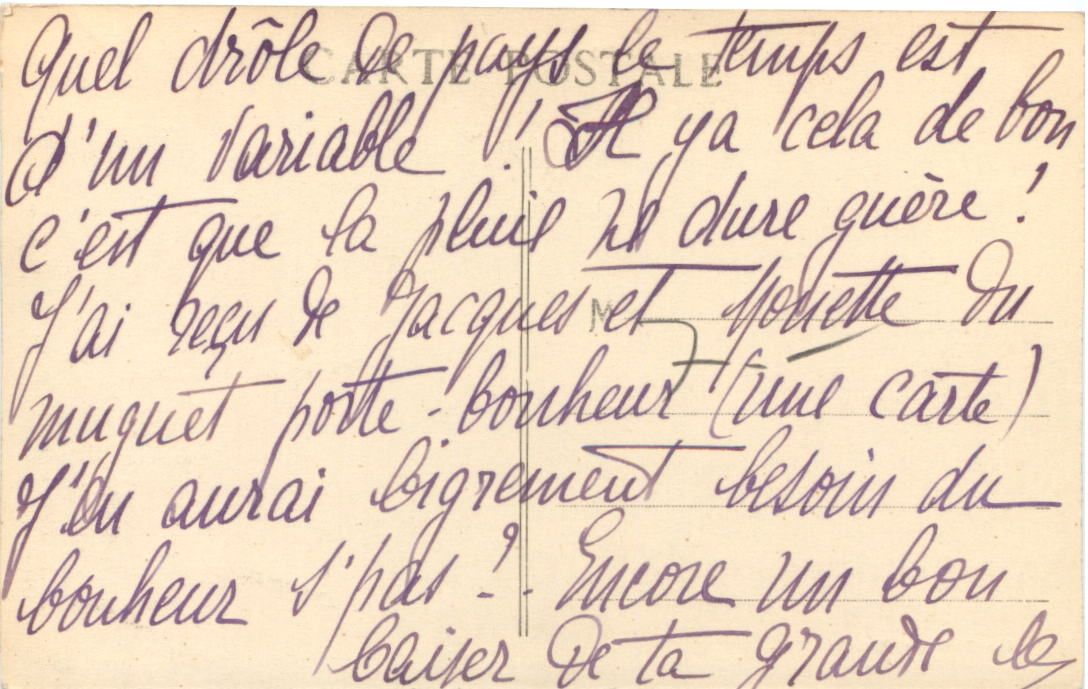 CARTE POSTALE
Quel drôle de pays le temps est
d'un variable ! Il ya cela de bon
c'est que la pluie ne dure guère !
J'ai reçu de Jacques et Monette du
muguet porte-bonheur (une carte)
J'en aurai bigrement besoin du
bonheur s'pas !. Encore un bon
baiser de ta grande
M